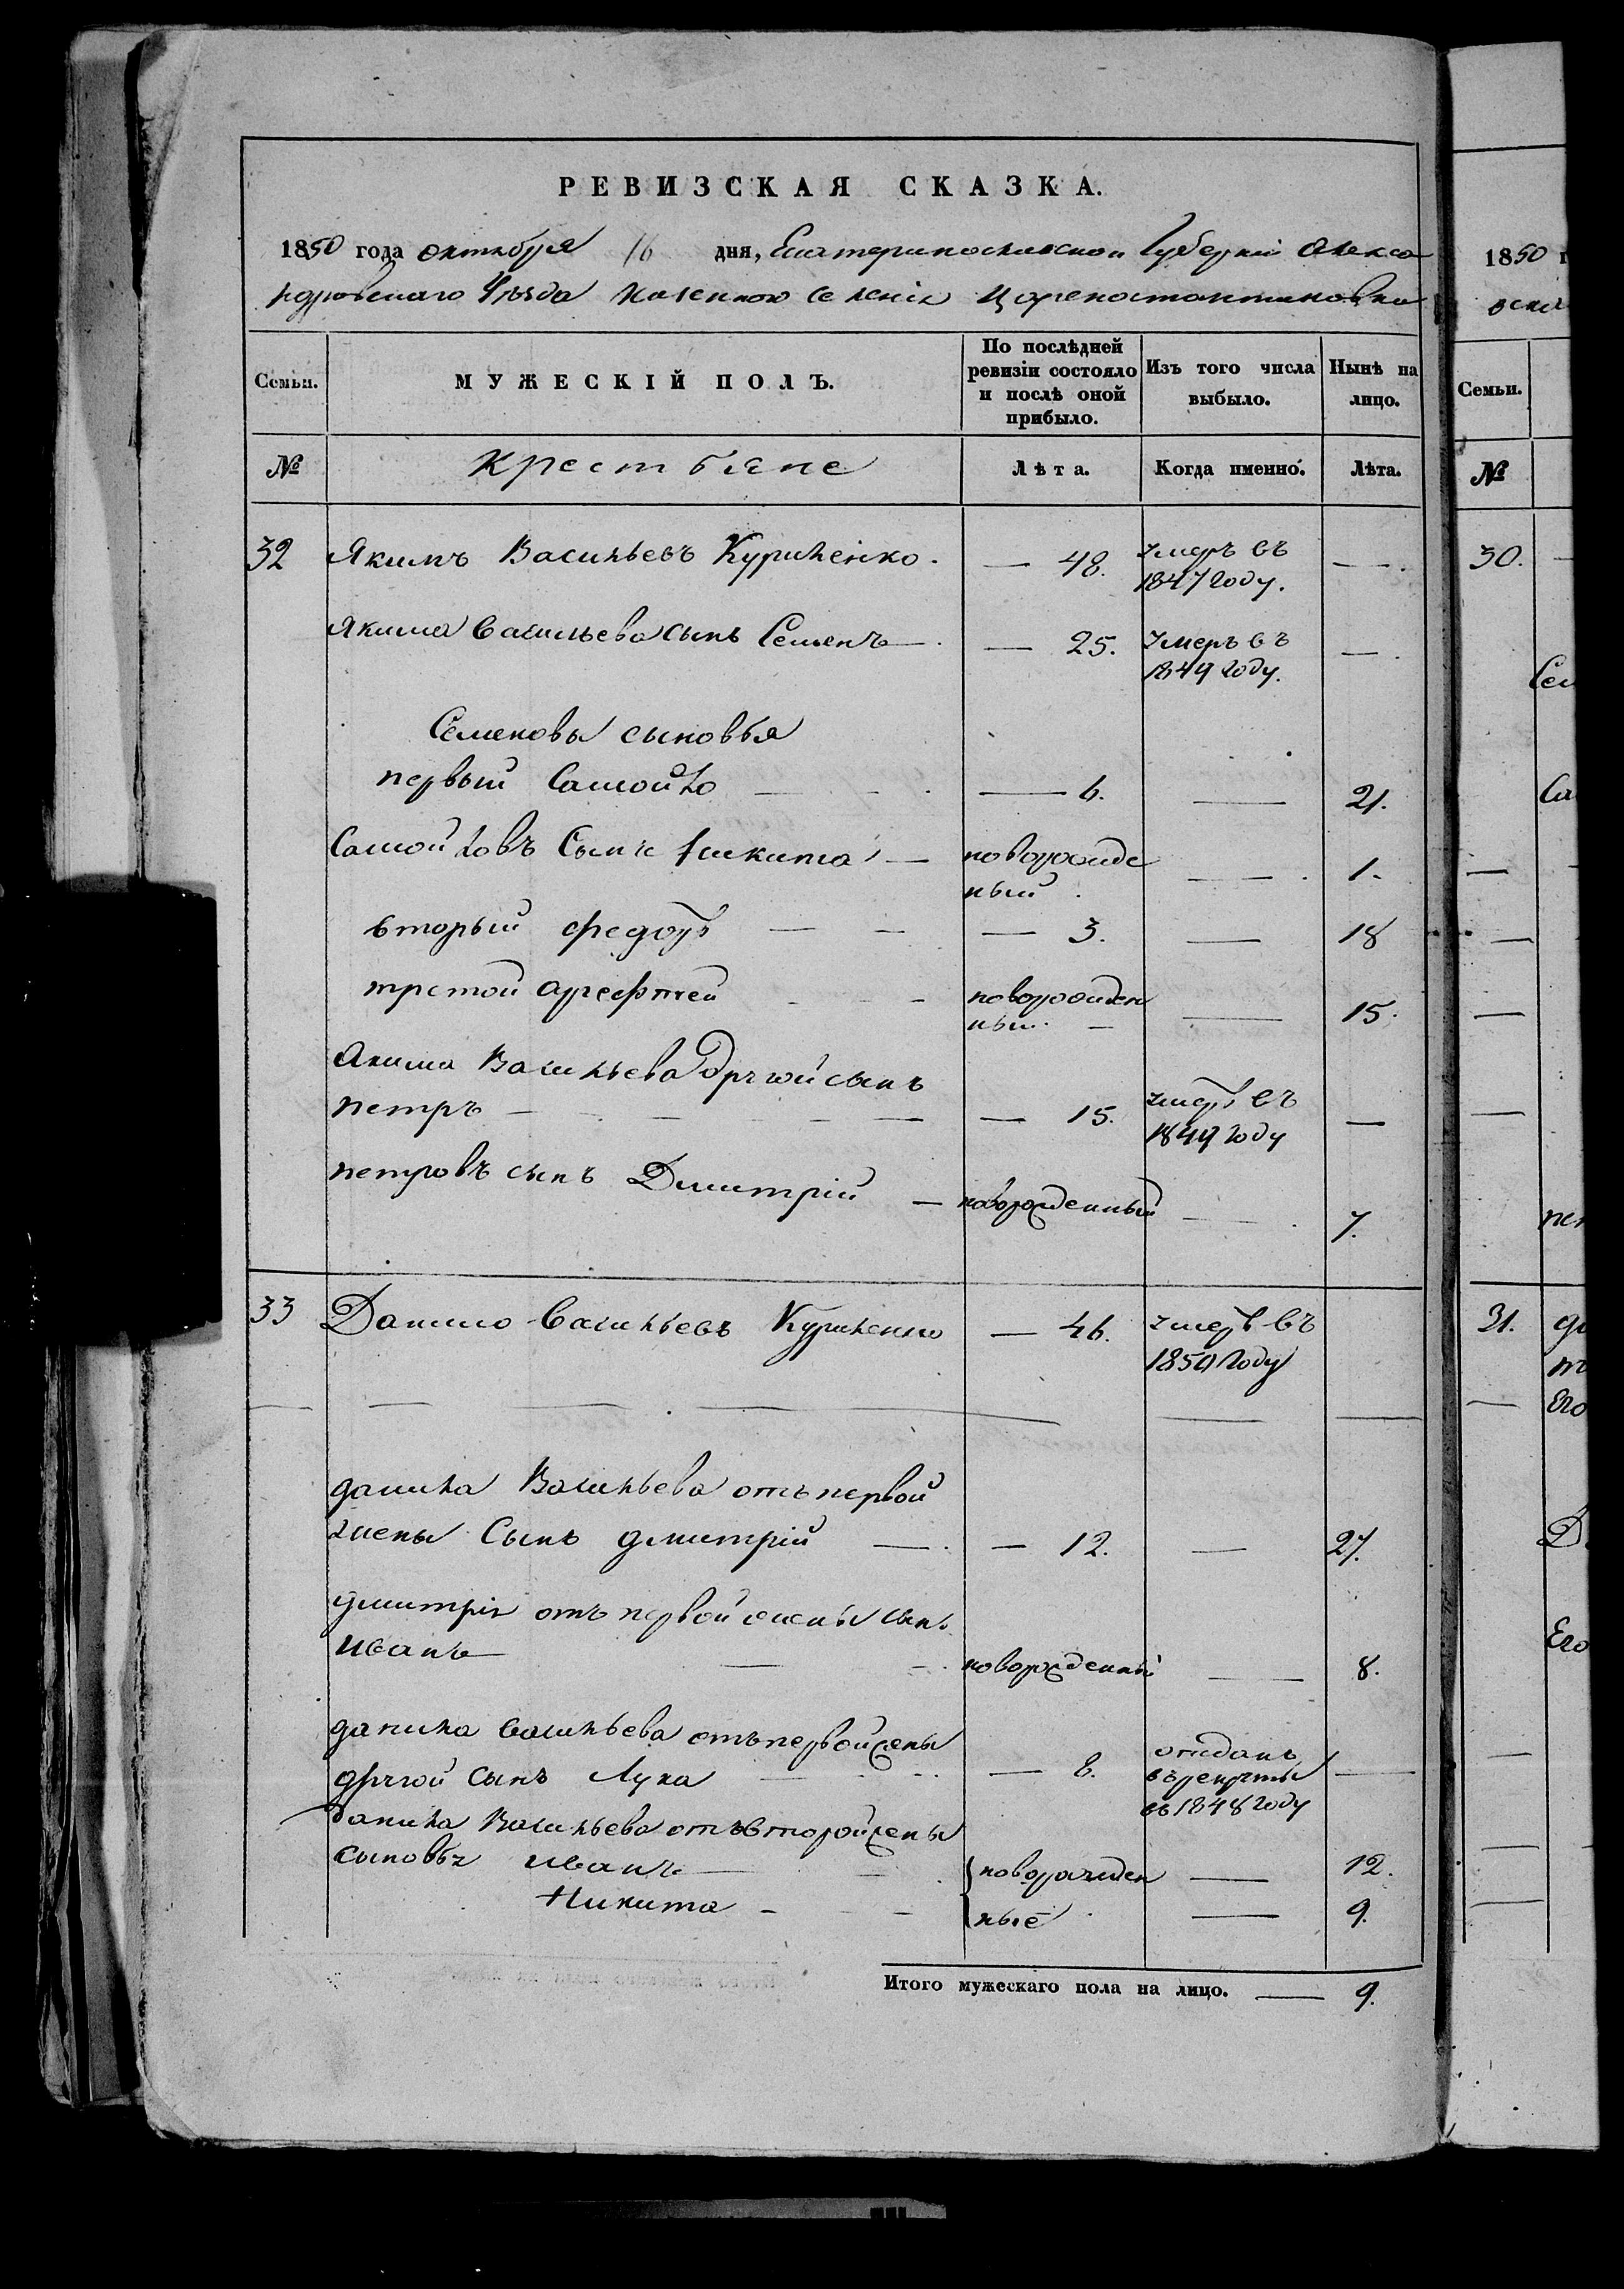 РЕВИЗСКАЯ СКАЗКА.
1850 года октября 16 дня, Екатеринославской Губерніи Алекса
ндровскаго Уѣзда казенного селенія Цареконстантиновка
Семьи.
МУЖЕСКІЙ ПОЛЪ.
По послѣдней
ревизіи состояло
и послѣ оной
прибыло.
Изъ того числа
выбыло.
Нынѣ на
лицо.
№ Крестьяне Лѣта. Когда именно. Лѣта.
32 Якимъ Васильевъ Куриленко. — 48. умеръ въ — .
1847 году.
Якима Васильева сынъ Семенъ — . — 25. умеръ въ — .
1849 году.
Семеновы сыновья
первый Самойло — — 6. — 21.
Самойловъ Сынъ Никита — новорожде — . 1.
ный .
вторый Федотъ — — — 3. — 18
третой Арефтей - - новорожден — 15.
ный. —
Якима Васильева другой сынъ
петръ — — — — 15. умеръ въ —
1849 году
петровъ сынъ Дмитрій — новорожденный — . 7.
33 Данило Васильевъ Куриленко — 46. умеръ въ
1850 году
данила Васильева отъ первой
жены Сынъ дмитрій — . — 12. — 27.
дмитрія отъ первой жены сынъ
иванъ — — новорожденный — 8.
данила Васильева отъ первой жены
другой сынъ Лука — — 8. отданъ —
въ рекруты
въ 1848 году
данила Васильева отъ второй жены
сыновья иванъ — новорожден — 12.
Никита — ные — 9.
Итого мужескаго пола на лицо. — 9.
1850 г
Семьи.
№
30.
Сем
Са
пет
31.
Его
Д
Его